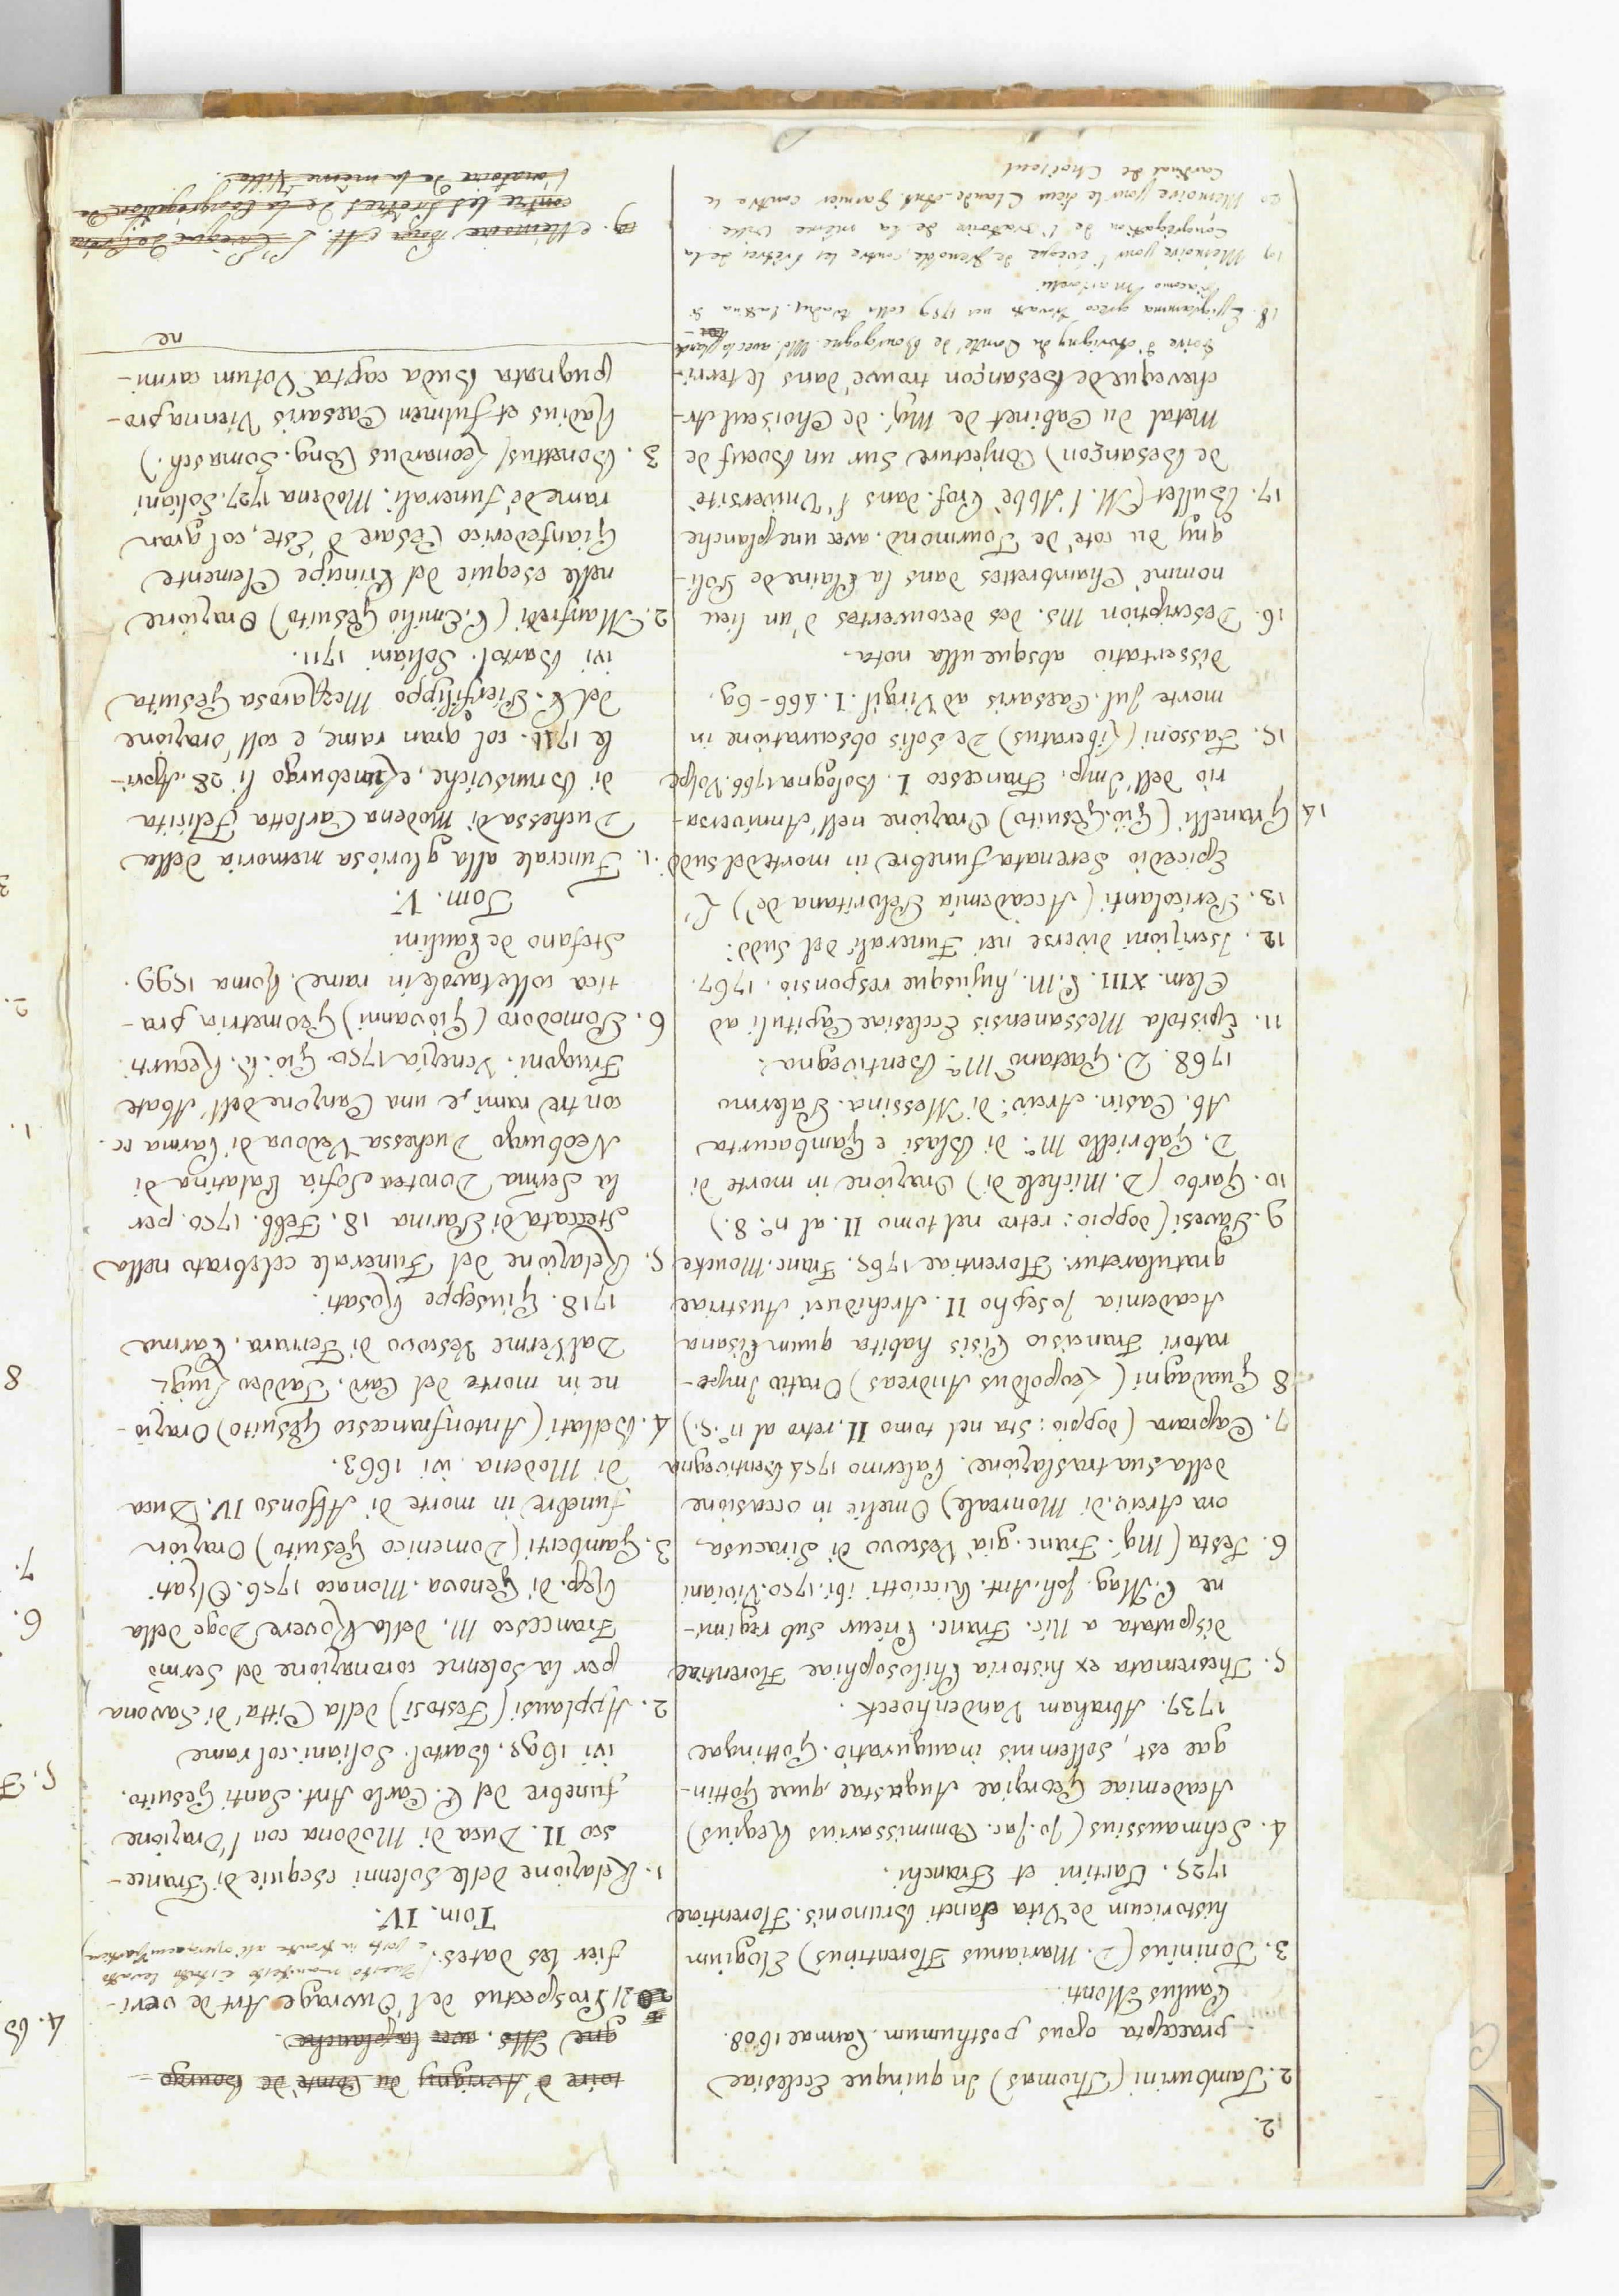 2.
2. Tamburini (Thomas) In quinque Ecclesiae
praecepta opus posthumum. Parmae 1608.
Paulus Monti.
3. Toninius (D. Marianus Florentinus) Elogium
historicum de Vita Sancti Brunonis. Florentiae
1725. Tartini et Franchi.
4. Schmaussius (Jo. Jac. Commissarius Regius)
Academiae Georgiae Augustae, quae Gottin-
gae est, sollemnis inauguratio. Gottingae
1737. Abraham Vandenhoeck.
5. Theoremata ex historia Philosophiae Florentiae
disputata a Nic. Franc. Prieur sub regimi-
ne P. Mag. Joh. Ant. Ricciotti ibi. 1750. Viviani
6. Testa (Mgr. Franc. già Vescovo di Siracusa,
ora Arciv. di Monreale) Omelie in occasione
della sua traslazione. Palermo 1754 Bentivegna
7. Caprara (doppio: sta nel tomo II. retro al n°. 5.)
8 Guadagni (Leopoldus Andreas) Oratio Impe-
ratori Francisco Pisis habita quum Pisana
Academia Josepho II. Archiduci Austriae
gratularetur. Florentiae 1765. Franc. Moucke
9. Pavesi (doppio: retro nel tomo II. al n°. 8.)
10. Garbo (D. Michele di) Orazione in morte di
D. Gabriello Mª. di Blasi e Gambacurta
Ab. Casin. Arciv°. di Messina. Palermo
1768. D. Gaetano Mª. Bentivegna.
11. Epistola Messanensis Ecclesiae Capituli ad
Clem. XIII. P. M., hujusque responsio. 1767.
12. Iscrizioni diverse nei Funerali del sudd°.
13. Pericolanti (Accademia Peloritana de') L'
Epicedio Serenata funebre in morte del sudd°.
14 Granelli (Giò. Gesuito) Orazione nell'Anniversa-
rio dell'Imp. Francesco I. Bologna 1766. Volpe
15. Fassoni (Liberatus) De Solis obscuratione in
morte Jul. Caesaris ad Virgil. I. 466-69.
dissertatio absque ulla nota.
16. Description Ms. des decouvertes d'un lieu
nommé Chambrettes dans la Plaine de Poli-
gny du coté de Tourmond. avec une planche
17. Bullet (M. l'Abbé Prof. dans l'Université
de Besançon) Conjecture sur un Boeuf de
Metal du Cabinet de Mgr. de Choiseul Ar-
cheveque de Besançon trouvé dans le terri-
toire d'Avrigny du Comté de Bourgogne. Ms. avec la planche
18. Epigramma greco trovato nel 1759 colla traduz. latina di
Giacomo Martorelli
19 Mémoire pour l'évèque de Grenoble, contre les Prêtres de la
Congrégation de l'oratoire de la même Ville.
20 Mémoire pour le sieur Claude-Ant. Garnier contre le
Cardinal de Choiseul
toire d'Avrigny du Comté de Bourgo-
gne Ms. avec la planche.
21 Prospectus de l'Ouvrage Art de veri-
fier les dates. (Questo manifesto è stato levato
e posto in fronte all'opera
Tom. IV.
1. Relazione delle Solenni esequie di France-
sco II. Duca di Modona con l'Orazione
funebre del P. Carlo Ant. Santi Gesuito.
ivi 1695. Bartol. Soliani. col rame
2. Applausi (Festosi) della Città di Savona
per la Solenne coronazione del Sermo
Francesco M. della Rovere Doge della
Rep. di Genova. Monaco 1756. Olzati
3. Gamberti (Domenico Gesuito) Orazion
funebre in morte di Alfonso IV. Duca
di Modena. ivi 1663.
4. Bellati (Antonfrancesco Gesuito) Orazio-
ne in morte del Card. Taddeo Luigi
Dal Verme Vescovo di Ferrara. Parma
1718. Giuseppe Rosati.
5. Relazione del Funerale celebrato nella
Steccata di Parma 18. Febb. 1750. per
la Serma Dorotea Sofia Palatina di
Neoburgo Duchessa Vedova di Parma ec.
con tre rami, e una Canzone dell'Abate
Frugoni. Venezia 1750 Gio. B. Recurti.
6. Pomodoro (Giovanni) Geometria pra-
tica colle tavole in rame. Roma 1599.
Stefano de Paulini
Tom. V.
1. Funerale alla gloriosa memoria della
Duchessa di Modena Carlotta Felicita
di Brunsviche, e Luneburgo li 28. Apri-
le 1711. col gran rame, e coll'orazione
del P. Pierfilippo Mezzarosa Gesuita
ivi Bartol. Soliani 1711.
2. Manfredi (P. Emilio Gesuito) Orazione
nelle esequie del Principe Clemente
Gianfederico Cesare d'Este, col gran
rame de' funerali. Modena 1727. Soliani
3. Bonettus (Leonardus Cong. Somasch.)
Radius et fulmen Caesaris Vienna pro-
pugnata Buda capta Votum carmi-
ne
19. Memoire pour M. l'Evèque de Grenoble
contre les Prêtres de la Congregation de
l'oratoire de la même Ville.
4. B
5. F
6.
7.
8
1.
2.
3